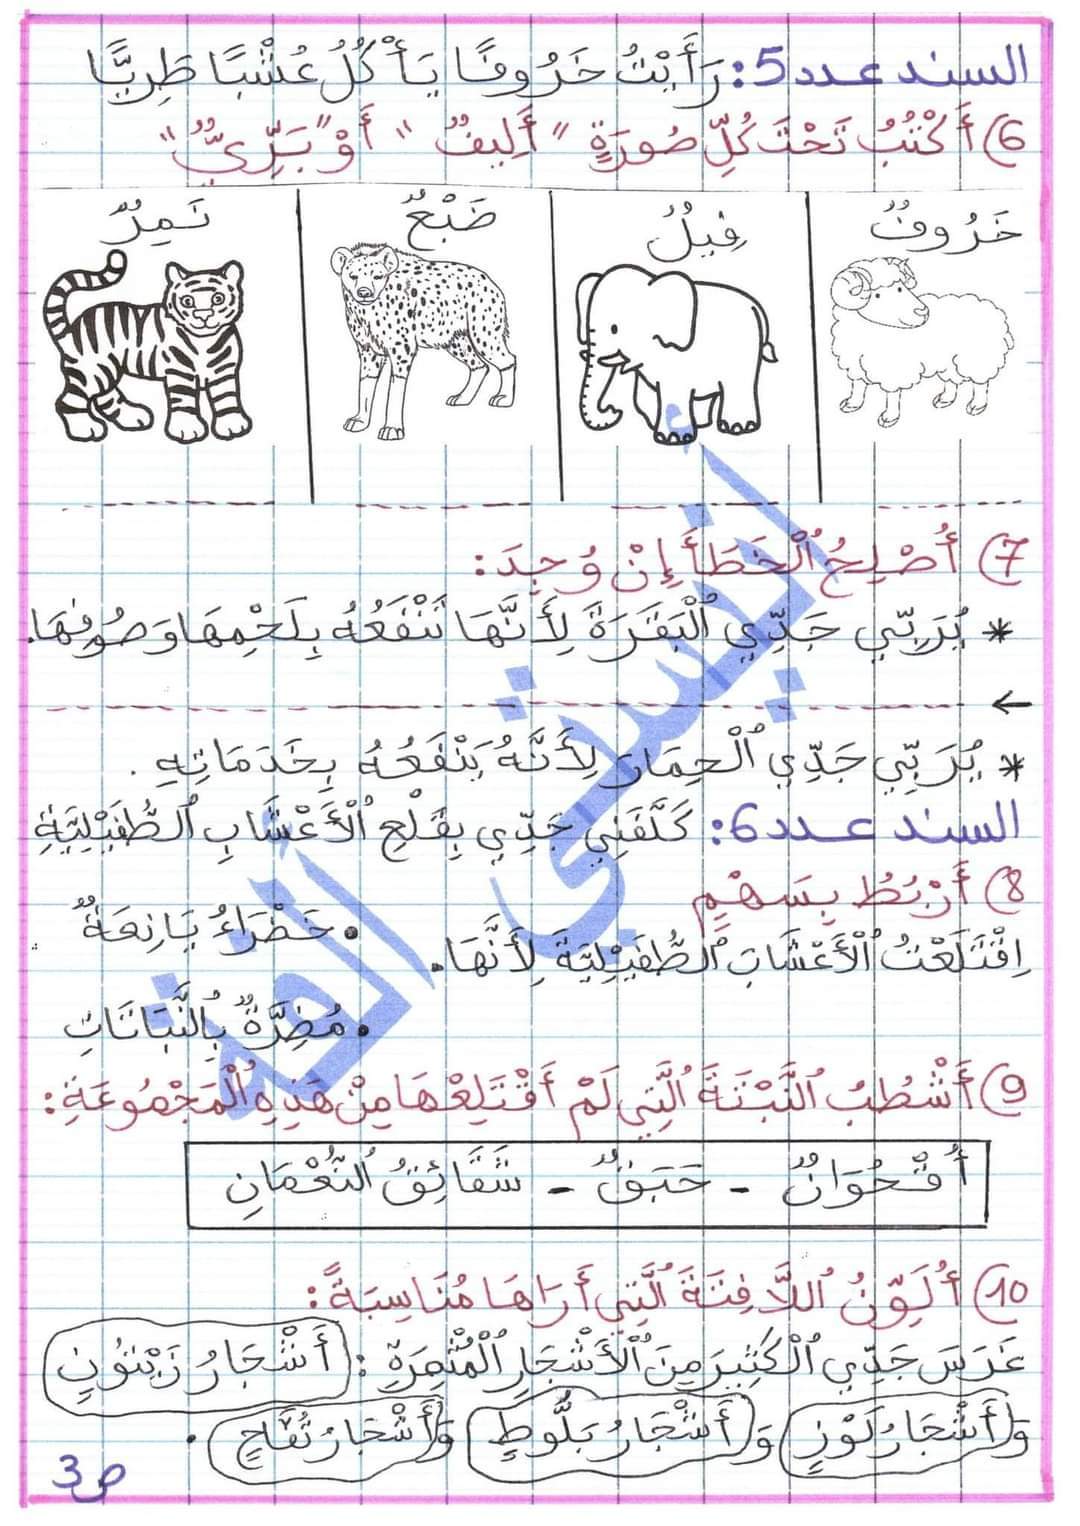 السند عدد 5: رَأَيْتُ خَرُوفًا يَأْكُلُ عُشْبًا طَرِيًّا
6) أَكْتُبُ تَحْتَ كُلِّ صُورَةٍ "أَلِيفٌ" أَوْ "بَرِّيٌّ"
خَرُوفٌ
فِيلٌ
ضَبْعٌ
نَمِرٌ
7) أُصْلِحُ ٱلْخَطَأَ إِنْ وُجِدَ:
* يُرَبِّي جَدِّي ٱلْبَقَرَةَ لِأَنَّهَا تَنْفَعُهُ بِلَحْمِهَا وَصُوفِهَا.
←
* يُرَبِّي جَدِّي ٱلْحِمَارَ لِأَنَّهُ يَنْفَعُهُ بِخَدَمَاتِهِ.
السند عدد 6: كَلَّفَنِي جَدِّي بِقَلْعِ ٱلْأَعْشَابِ ٱلطُّفَيْلِيَّةِ
8) أَرْبُطُ بِسَهْمٍ
• خَضْرَاءُ يَانِعَةٌ
اِقْتَلَعْتُ ٱلْأَعْشَابَ ٱلطُّفَيْلِيَّةَ لِأَنَّهَا •
• مُضِرَّةٌ بِٱلنَّبَاتَاتِ
9) أَشْطُبُ ٱلنَّبْتَةَ ٱلَّتِي لَمْ أَقْتَلِعْهَا مِنْ هَذِهِ ٱلْمَجْمُوعَةِ:
أُقْحُوَانٌ - حَبَقٌ - شَقَائِقُ ٱلنُّعْمَانِ
10) أُلَوِّنُ ٱللَّافِتَةَ ٱلَّتِي أَرَاهَا مُنَاسِبَةً:
غَرَسَ جَدِّي ٱلْكَثِيرَ مِنَ ٱلْأَشْجَارِ ٱلْمُثْمِرَةِ: أَشْجَارُ زَيْتُونٍ
وَ أَشْجَارُ لَوْزٍ وَ أَشْجَارُ بَلُّوطٍ وَ أَشْجَارُ تُفَّاحٍ.
ص 3